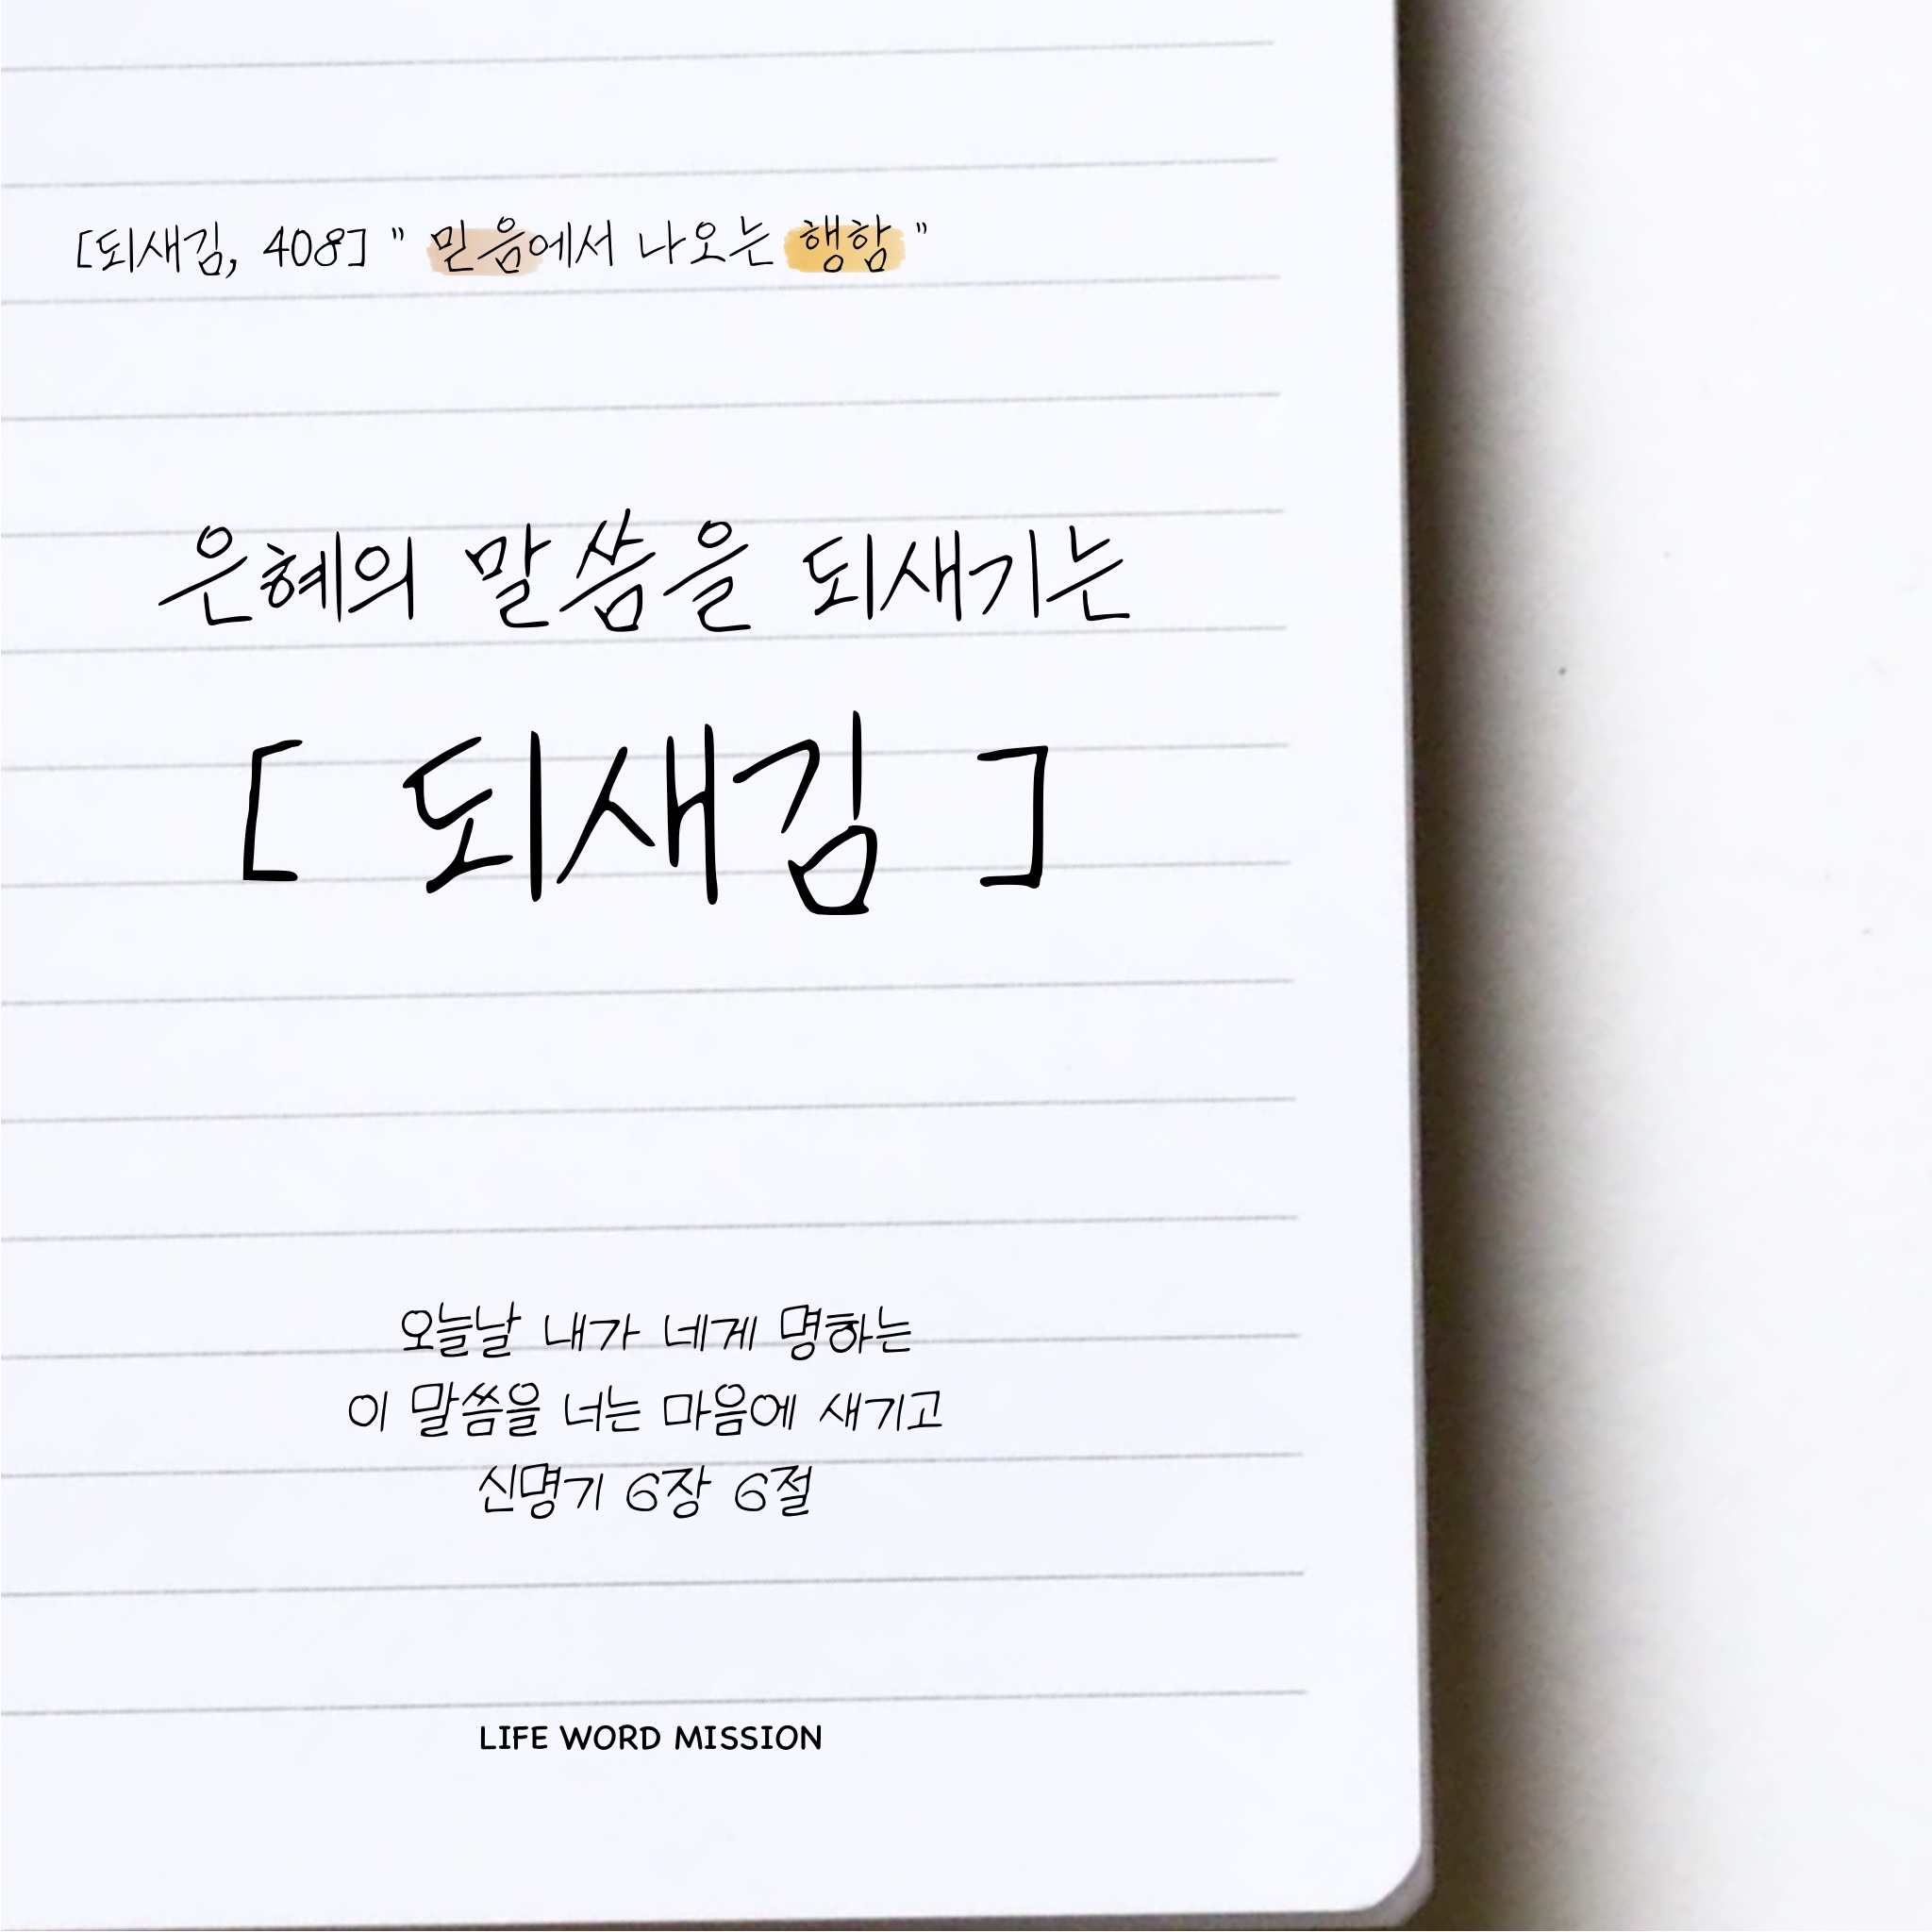 [되새김, 408] " 믿음에서 나오는 행함 "
은혜의 말씀을 되새기는
[ 되새김 ]
오늘날 내가 네게 명하는
이 말씀을 너는 마음에 새기고
신명기 6장 6절
LIFE WORD MISSION